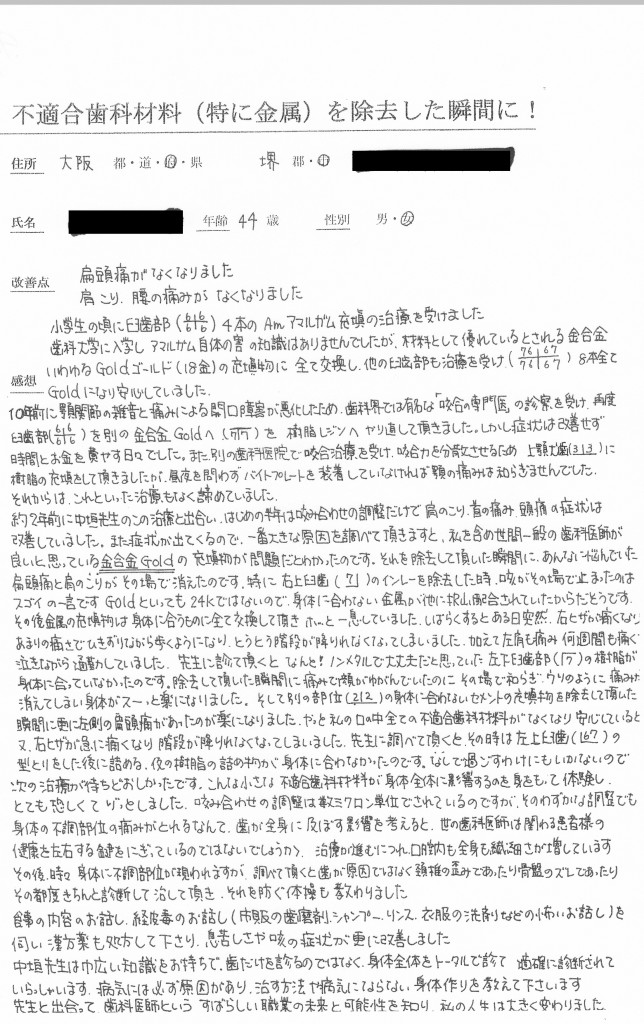 不適合歯科材料（特に金属）を除去した瞬間に！
住所 大阪 都・道・府・県 堺 郡・市
氏名 年齢 44 歳 性別 男・女
改善点 扁頭痛がなくなりました
肩こり、腰の痛みが なくなりました
小学生の頃に臼歯部（6|6 6|6）4本の Am アマルガム充填の治療を受けました
歯科大学に入学し アマルガム自体の害の知識はありませんでしたが、材料として優れているとされる金合金
いわゆる Gold ゴールド（18金）の充填物に 全て交換し、他の臼歯部も治療を受け（76|67 76|67）8本全て
感想 Gold になり安心していました。
10年前に顎関節の雑音と痛みによる開口障害が悪化したため、歯科界では有名な「咬合の専門医」の診察を受け、再度
臼歯部（6|6 6|6）を別の金合金 Gold へ を樹脂レジンへ やり直して頂きました。しかし症状は改善せず
時間とお金を費やす日々でした。また別の歯科医院で咬合治療を受け、咬合力を分散させるため 上顎犬歯（3|3）に
樹脂の充填をして頂きましたが、昼夜を問わず バイトプレートを 装着していなければ顎の痛みは和らぎませんでした。
それからは、これといった治療もなく諦めていました。
約2年前に中垣先生のこの治療と出合い、はじめの半年は咬み合わせの調整だけで 肩のこり、首の痛み、頭痛の症状は
改善していました。また症状が出てくるので、一番大きな原因を調べて頂きますと、私を含め世間一般の歯科医師が
良いと思っている金合金 Gold の充填物が問題だとわかったのです。それを除去して頂いた瞬間に、あんなに悩んでいた
扁頭痛と肩のこりが その場で消えたのです。特に 右上臼歯（7|）のインレーを除去した時、咳がその場で止まったのは
スゴイの一言です Gold といっても 24k ではないので、身体に合わない金属が他に沢山配合されていたからだそうです。
その後金属の充填物は身体に合うものに全て交換して頂き ホッと一息していました。しばらくするとある日突然、右ヒザが痛くなり
あまりの痛さでひきずりながら歩くようになり、とうとう階段が降りれなくなってしまいました。加えて左肩も痛み 何週間も痛くて
泣きながら通勤していました。 先生に診て頂くと なんと！ノンメタルで大丈夫だと思っていた 左下臼歯部（|7）の樹脂が
身体に合っていなかったのです。除去して頂いた瞬間に 痛みで顔がゆがんでいたのに その場で和らぎ、ウソのように 痛みが
消えてしまい身体がスーっと楽になりました。そして別の部位（2|2）の身体に合わないセメントの充填物を除去して頂いた
瞬間に更に左側の扁頭痛があったのが楽になりました。やっと私の口の中全ての不適合歯科材料がなくなり安心していると
又、右ヒザが急に痛くなり 階段が降りれなくなってしまいました。先生に調べて頂くと、その時は左上臼歯（|67）の
型とりをした後に詰める、仮の樹脂の詰め物が身体に合わなかったのです。なしで過ごすわけにもいかないので
次の治療が待ちどおしかったです。こんな小さな 不適合歯科材料が身体全体に影響するのを身をもって体験し、
とても恐しくてゾッとしました。咬み合わせの調整は数ミクロン単位でされているのですが、そのわずかな調整でも
身体の不調部位の痛みがとれるなんて、歯が全身に 及ぼす影響を考えると、世の歯科医師は関わる患者様の
健康を左右する鍵をにぎっているのではないでしょうか、 治療が進むにつれ口腔内も全身も繊細さが増しています
その後、時々身体に不調部位が現われますが、調べて頂くと歯が原因ではなく 頚椎の歪みであったり骨盤のズレであったり
その都度きちんと診断して治して頂き、それを防ぐ体操も教わりました
食事の内容のお話し、経皮毒のお話し（市販の歯磨剤、シャンプー、リンス、衣服の洗剤などの怖いお話し）を
伺い 漢方薬も処方して下さり、息苦しさや咳の症状が更に改善しました
中垣先生は巾広い知識をお持ちで、歯だけを診るのではなく、身体全体をトータルで診て 適確に診断されて
いらっしゃいます。病気には必ず原因があり、治す方法や病気にならない身体作りを教えて下さいます
先生と出合って、歯科医師という すばらしい職業の未来と可能性を知り、私の人生は大きく変わりました。